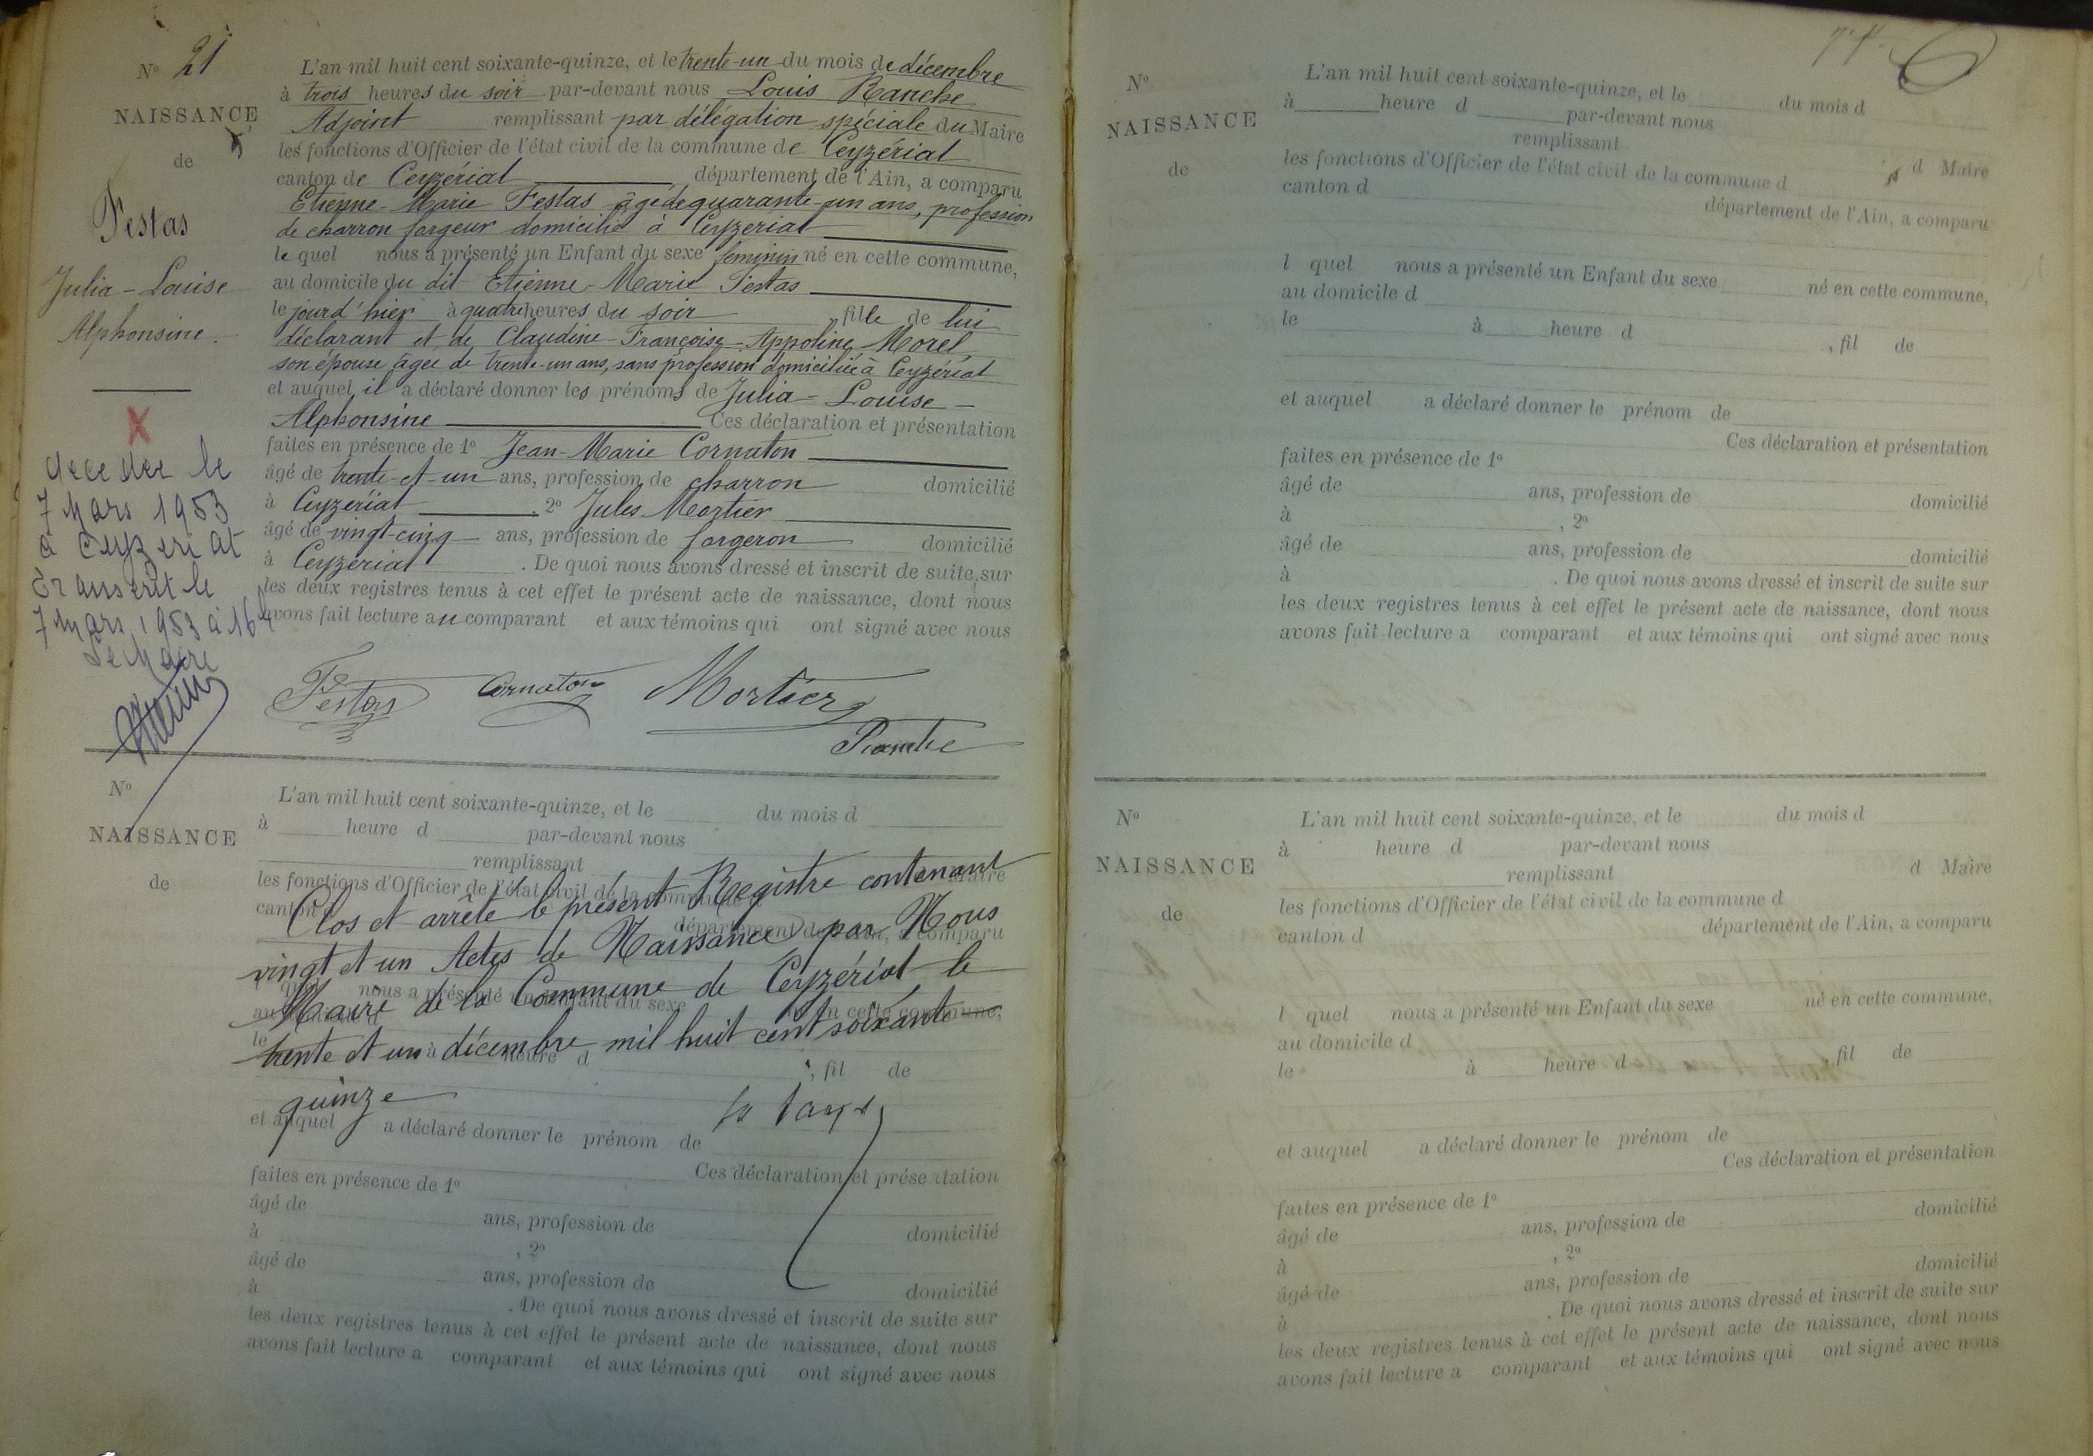 N° 21
NAISSANCE
de
Festas
Julia - Louise
Alphonsine.
X
decedee le
7 Mars 1953
à Ceyzeriat
transcrit le
7 Mars 1953 à 16 h
Le Maire
L'an mil huit cent soixante-quinze, et le trente-un du mois de décembre
à trois heures du soir par-devant nous Louis Ranche
Adjoint remplissant par délégation spéciale du Maire
les fonctions d'Officier de l'état civil de la commune de Ceyzériat
canton de Ceyzériat département de l'Ain, a comparu
Etienne-Marie Festas âgé de quarante-un ans, profession
de charron forgeur domicilié à Ceyzeriat
le quel nous a présenté un Enfant du sexe feminin né en cette commune,
au domicile du dit Etienne-Marie Festas
le jourd'hier à quatre heures du soir, fille de lui
déclarant et de Claudine-Françoise-Appoline Morel
son épouse âgée de trente-un ans, sans profession domiciliée à Ceyzériat
et auquel il a déclaré donner les prénoms de Julia - Louise -
Alphonsine Ces déclaration et présentation
faites en présence de 1° Jean-Marie Cornaton
âgé de trente-et-un ans, profession de charron domicilié
à Ceyzeriat, 2° Jules Mortier
âgé de vingt-cinq ans, profession de forgeron domicilié
à Ceyzeriat. De quoi nous avons dressé et inscrit de suite sur
les deux registres tenus à cet effet le présent acte de naissance, dont nous
avons fait lecture au comparant et aux témoins qui ont signé avec nous
Festas Cornaton Mortier
Ranche
N°
NAISSANCE
de
L'an mil huit cent soixante-quinze, et le du mois d
à heure d par-devant nous
remplissant Maire
les fonctions d'Officier de l'état civil de la commune
canton département de l'Ain, a comparu
Clos et arrêté le présent Registre contenant
vingt et un Actes de Naissance par Nous
Maire de la Commune de Ceyzériat le
trente et un décembre mil huit cent soixante
quinze
quel nous a présenté un Enfant du sexe né en cette commune,
au domicile d
le à heure d , fil de
et auquel a déclaré donner le prénom de
Ces déclaration et présentation
faites en présence de 1°
âgé de ans, profession de domicilié
à , 2°
âgé de ans, profession de domicilié
à . De quoi nous avons dressé et inscrit de suite sur
les deux registres tenus à cet effet le présent acte de naissance, dont nous
avons fait lecture a comparant et aux témoins qui ont signé avec nous
N°
NAISSANCE
de
L'an mil huit cent soixante-quinze, et le du mois d
à heure d par-devant nous
remplissant d Maire
les fonctions d'Officier de l'état civil de la commune d
canton d département de l'Ain, a comparu
l quel nous a présenté un Enfant du sexe né en cette commune,
au domicile d
le à heure d , fil de
et auquel a déclaré donner le prénom de
Ces déclaration et présentation
faites en présence de 1°
âgé de ans, profession de domicilié
à , 2°
âgé de ans, profession de domicilié
à . De quoi nous avons dressé et inscrit de suite sur
les deux registres tenus à cet effet le présent acte de naissance, dont nous
avons fait lecture a comparant et aux témoins qui ont signé avec nous
N°
NAISSANCE
de
L'an mil huit cent soixante-quinze, et le du mois d
à heure d par-devant nous
remplissant d Maire
les fonctions d'Officier de l'état civil de la commune d
canton d département de l'Ain, a comparu
l quel nous a présenté un Enfant du sexe né en cette commune,
au domicile d
le à heure d fil de
et auquel a déclaré donner le prénom de
Ces déclaration et présentation
faites en présence de 1°
âgé de ans, profession de domicilié
à , 2°
âgé de ans, profession de domicilié
à . De quoi nous avons dressé et inscrit de suite sur
les deux registres tenus à cet effet le présent acte de naissance, dont nous
avons fait lecture a comparant et aux témoins qui ont signé avec nous